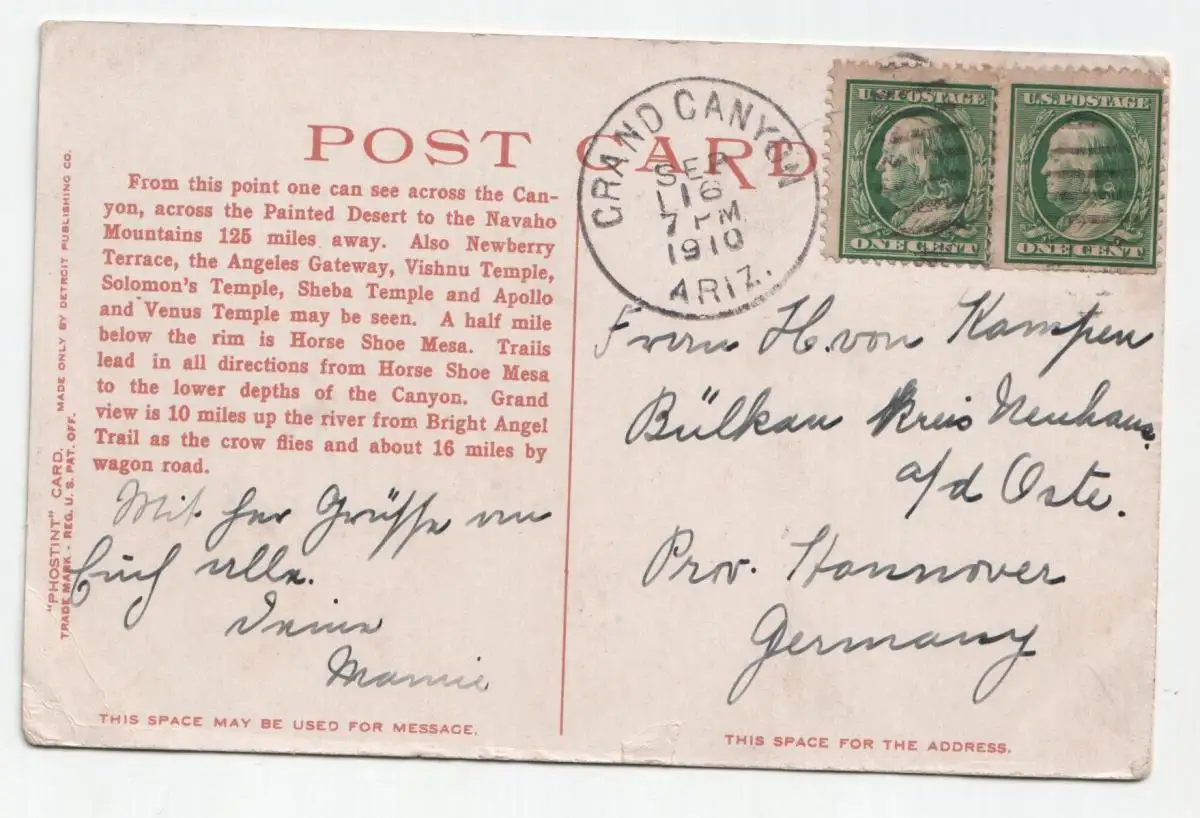 POST CARD
From this point one can see across the Can-
yon, across the Painted Desert to the Navaho
Mountains 125 miles away. Also Newberry
Terrace, the Angeles Gateway, Vishnu Temple,
Solomon's Temple, Sheba Temple and Apollo
and Venus Temple may be seen. A half mile
below the rim is Horse Shoe Mesa. Trails
lead in all directions from Horse Shoe Mesa
to the lower depths of the Canyon. Grand
view is 10 miles up the river from Bright Angel
Trail as the crow flies and about 16 miles by
wagon road.
"PHOSTINT" CARD. MADE ONLY BY DETROIT PUBLISHING CO.
TRADE MARK - REG. U. S. PAT. OFF.
Mit Grüsse an
Euch alle.
Deine
Mamie
THIS SPACE MAY BE USED FOR MESSAGE.
GRAND CANYON
SEP
16
7 PM
1910
ARIZ.
U.S. POSTAGE
ONE CENT
U.S. POSTAGE
ONE CENT
H. von Kampen
Bülkau Kreis Neuhaus
a/d Oste.
Prov. Hannover
Germany
THIS SPACE FOR THE ADDRESS.